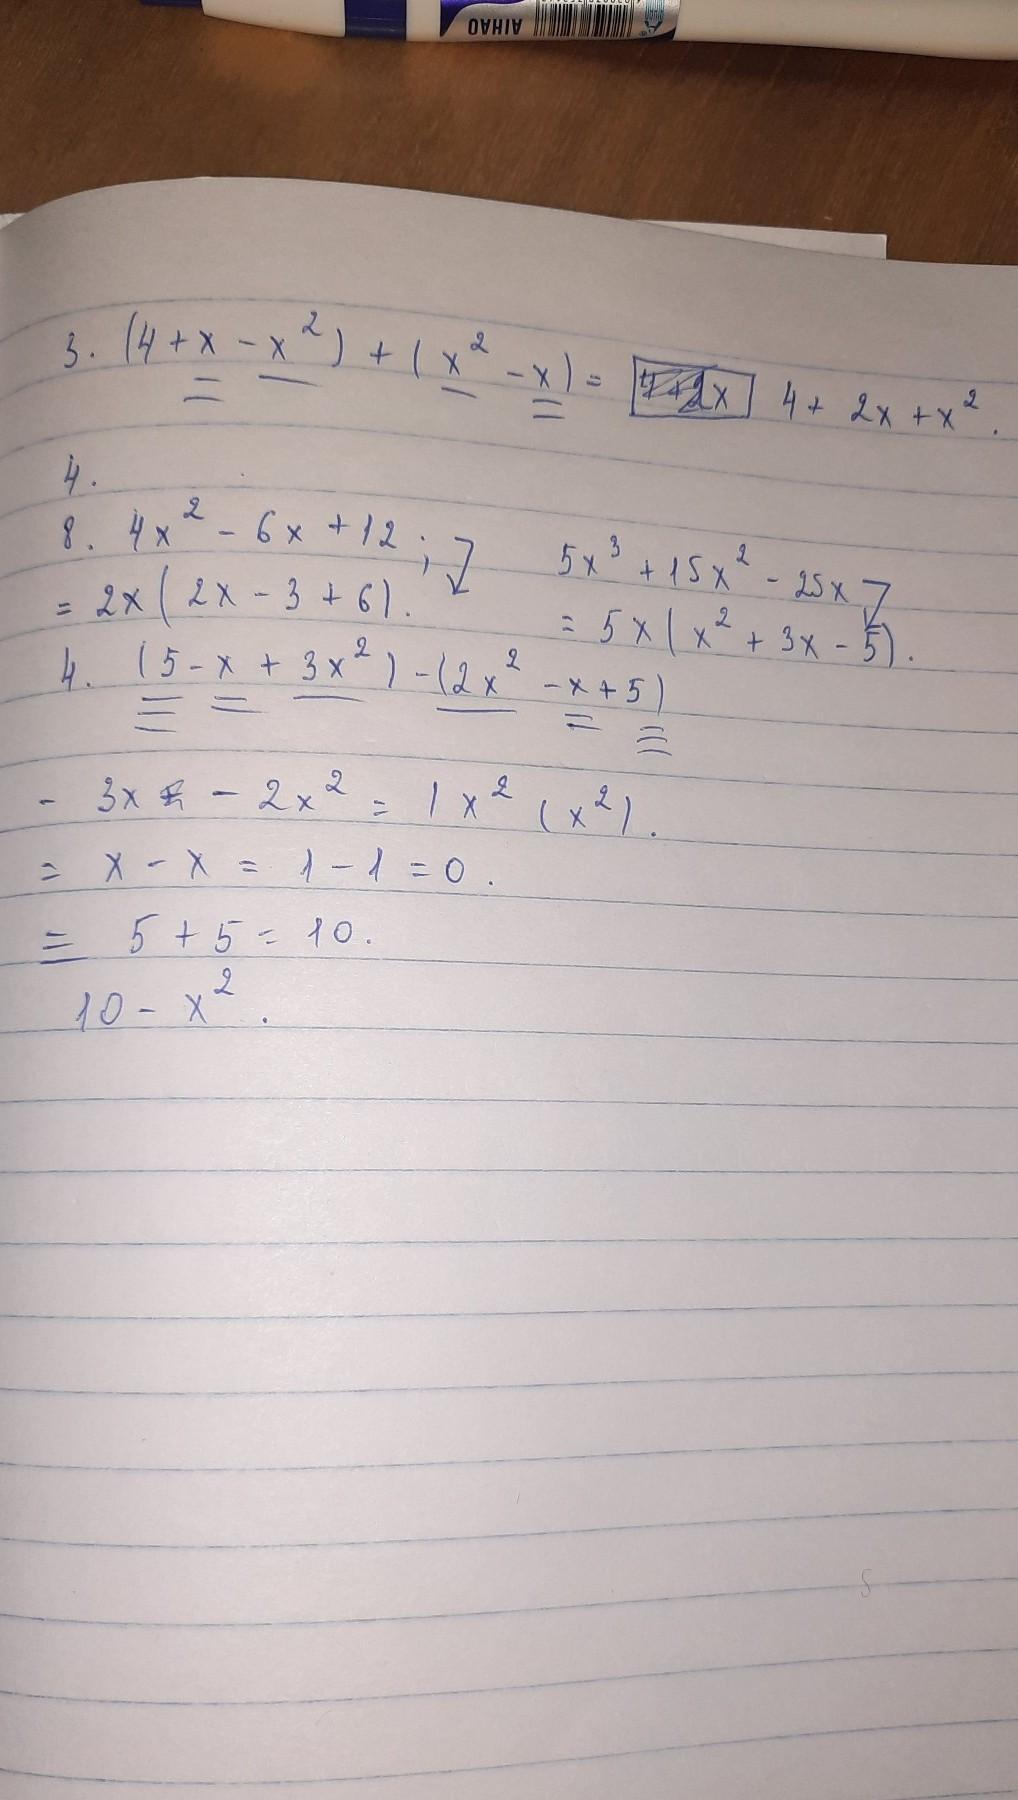 AIHAO
3. (4 + x - x²) + (x² - x) = 4 + 2x + x².
4.
8. 4x² - 6x + 12; 5x³ + 15x² - 25x
= 2x(2x - 3 + 6). = 5x(x² + 3x - 5).
4. (5 - x + 3x²) - (2x² - x + 5)
- 3x - 2x² = 1x² (x²).
= x - x = 1 - 1 = 0.
≡ 5 + 5 = 10.
10 - x².